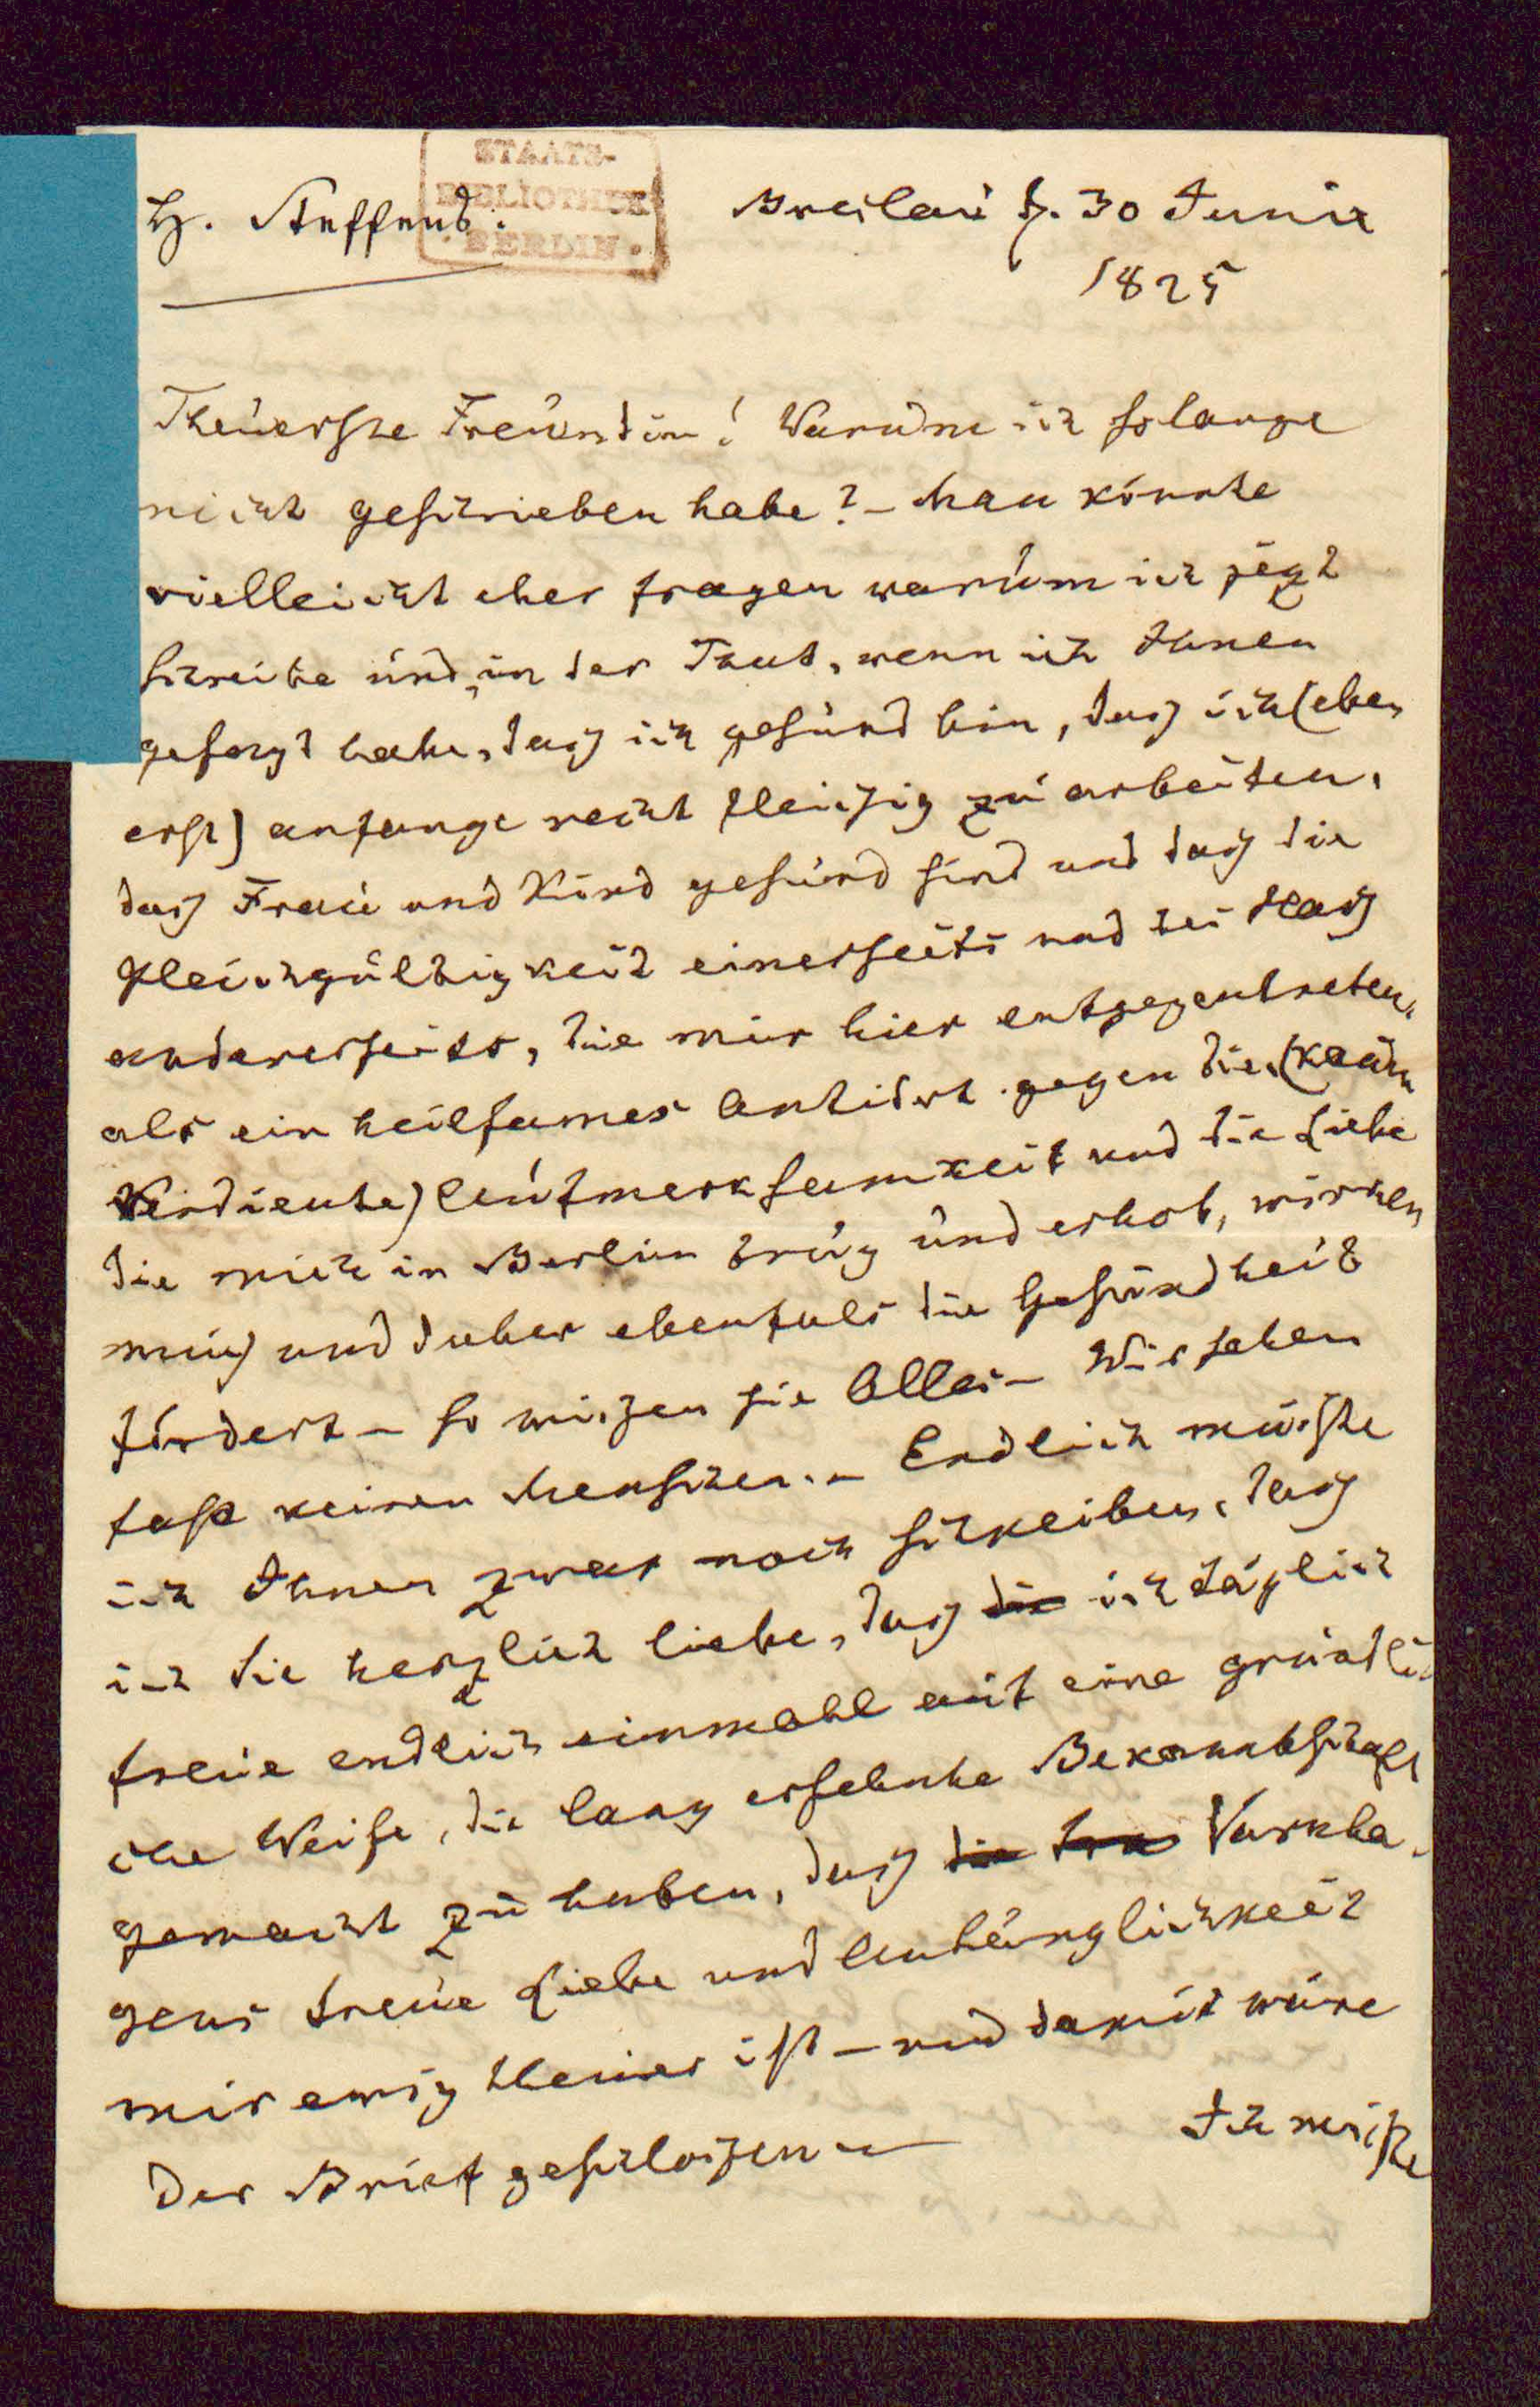 STAATS-
BIBLIOTHEK
BERLIN.
H. Steffens.
Breslau d. 30 Junii
1825
Theuerste Freundin! Warum ich so lange
nicht geschrieben habe? – Man könnte
vielleicht eher fragen warum ich jezt
schreibe und, in der That, wenn ich Ihnen
gesagt habe, daß ich gesund bin, daß ich (eben
erst) anfange recht fleißig zu arbeiten,
daß Frau und Kind gesund sind und daß die
Gleichgültigkeit einerseits und der Haß
andererseits, die mir hier entgegentreten,
als ein heilsames Antidot gegen die (kaum
verdiente) Aufmerksamkeit und die Liebe
die mich in Berlin trug und erhob, wirken
muß und daher ebenfals die Gesundheit
fördert – so wißen sie Alles – Wir sehen
fast keinen Menschen. – Endlich müste
ich Ihnen zwar noch schreiben, daß
ich Sie herzlich liebe, daß die ich täglich
freue endlich einmahl auf eine gründli
che Weise, die lang ersehnte Bekanntschaft
gemacht zu haben, daß die tre Varnha-
gens treue Liebe und Anhänglichkeit
mir ewig theuer ist – und damit wäre
der Brief geschloßen –
Ich müste